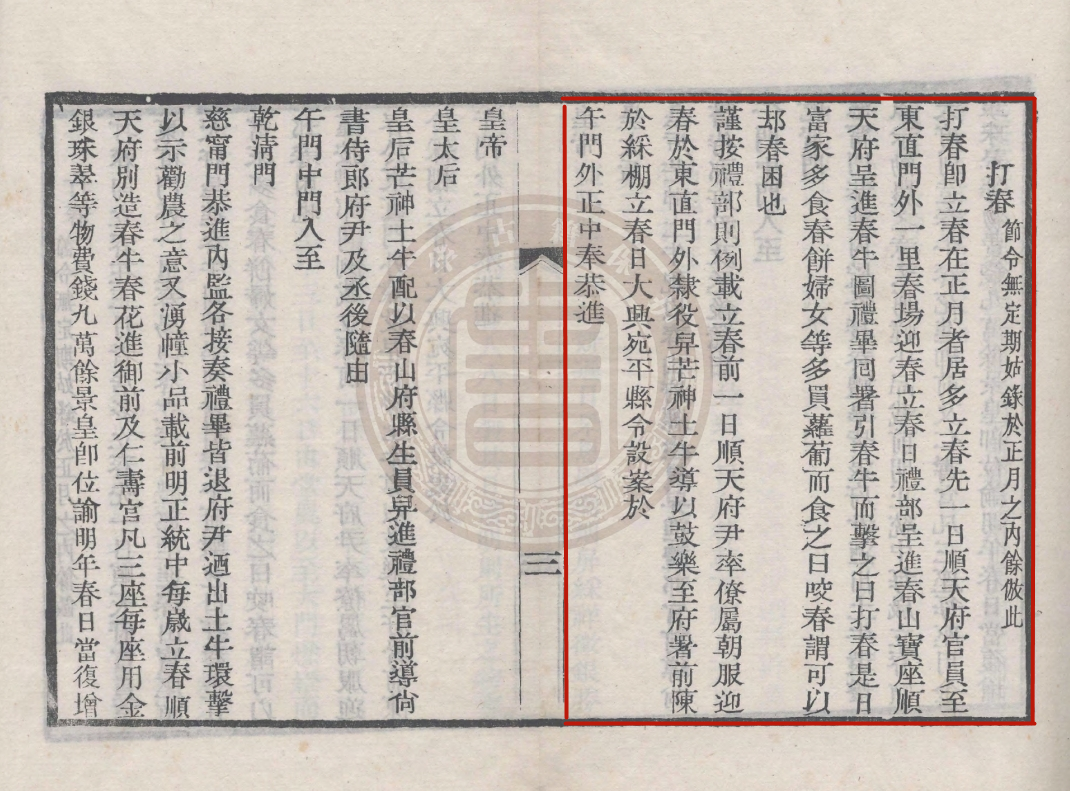 打春 節令無定期姑錄於正月之內餘倣此
打春卽立春在正月者居多立春先一日順天府官員至
東直門外一里春場迎春立春日禮部呈進春山寶座順
天府呈進春牛圖禮畢囘署引春牛而擊之曰打春是日
富家多食春餅婦女等多買蘿蔔而食之曰咬春謂可以
却春困也
謹按禮部則例載立春前一日順天府尹率僚屬朝服迎
春於東直門外隸役舁芒神土牛導以鼓樂至府署前陳
於綵棚立春日大興宛平縣令設案於
午門外正中奉恭進
三
皇帝
皇太后
皇后芒神土牛配以春山府縣生員舁進禮部官前導尙
書侍郎府尹及丞後隨由
午門中門入至
乾清門
慈甯門恭進內監各接奏禮畢皆退府尹迺出土牛環擊
以示勸農之意又湧幢小品載前明正統中每歲立春順
天府別造春牛春花進御前及仁壽宮凡三座每座用金
銀珠翠等物費錢九萬餘景皇卽位諭明年春日當復增